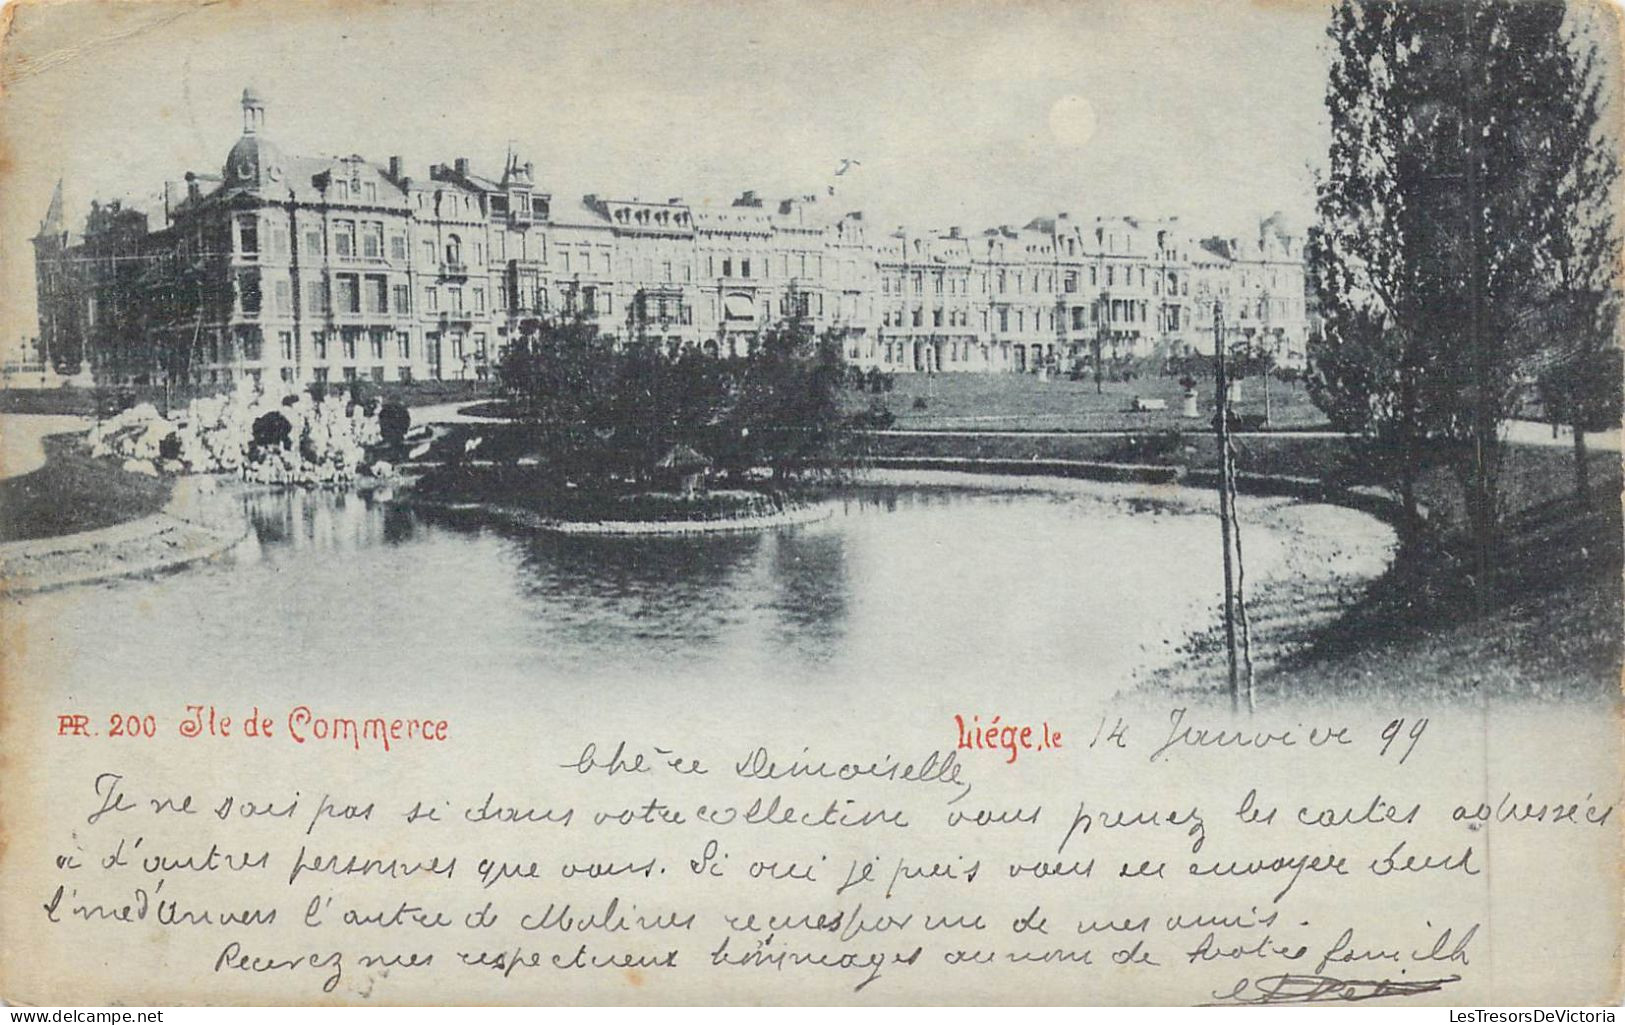 PR. 200 Ile de Commerce
Liége, le 14 Janvier 99
Chère Demoiselle,
Je ne sais pas si dans votre collection vous prenez les cartes adressées
à d'autres personnes que vous. Si oui je puis vous en envoyer deux
l'une d'Anvers l'autre de Malines recues par un de mes amis.
Recevez mes respectueux hommages au nom de votre famille
LesTresorsDeVictoria